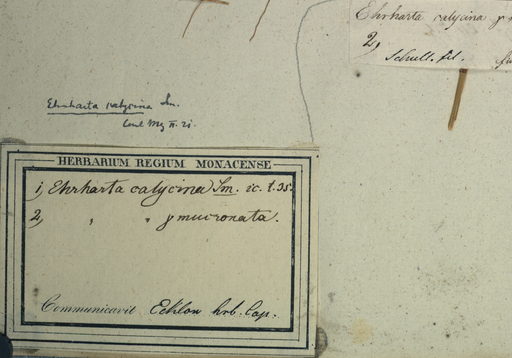 Ehrharta calycina γ
2,
Schult. fil.
Ehrharta calycina Sm.
HERBARIUM REGIUM MONACENSE
1, Ehrharta calycina Sm. ic. t. 35.
2, " " γ mucronata.
Communicavit Ecklon hrb. Cap.